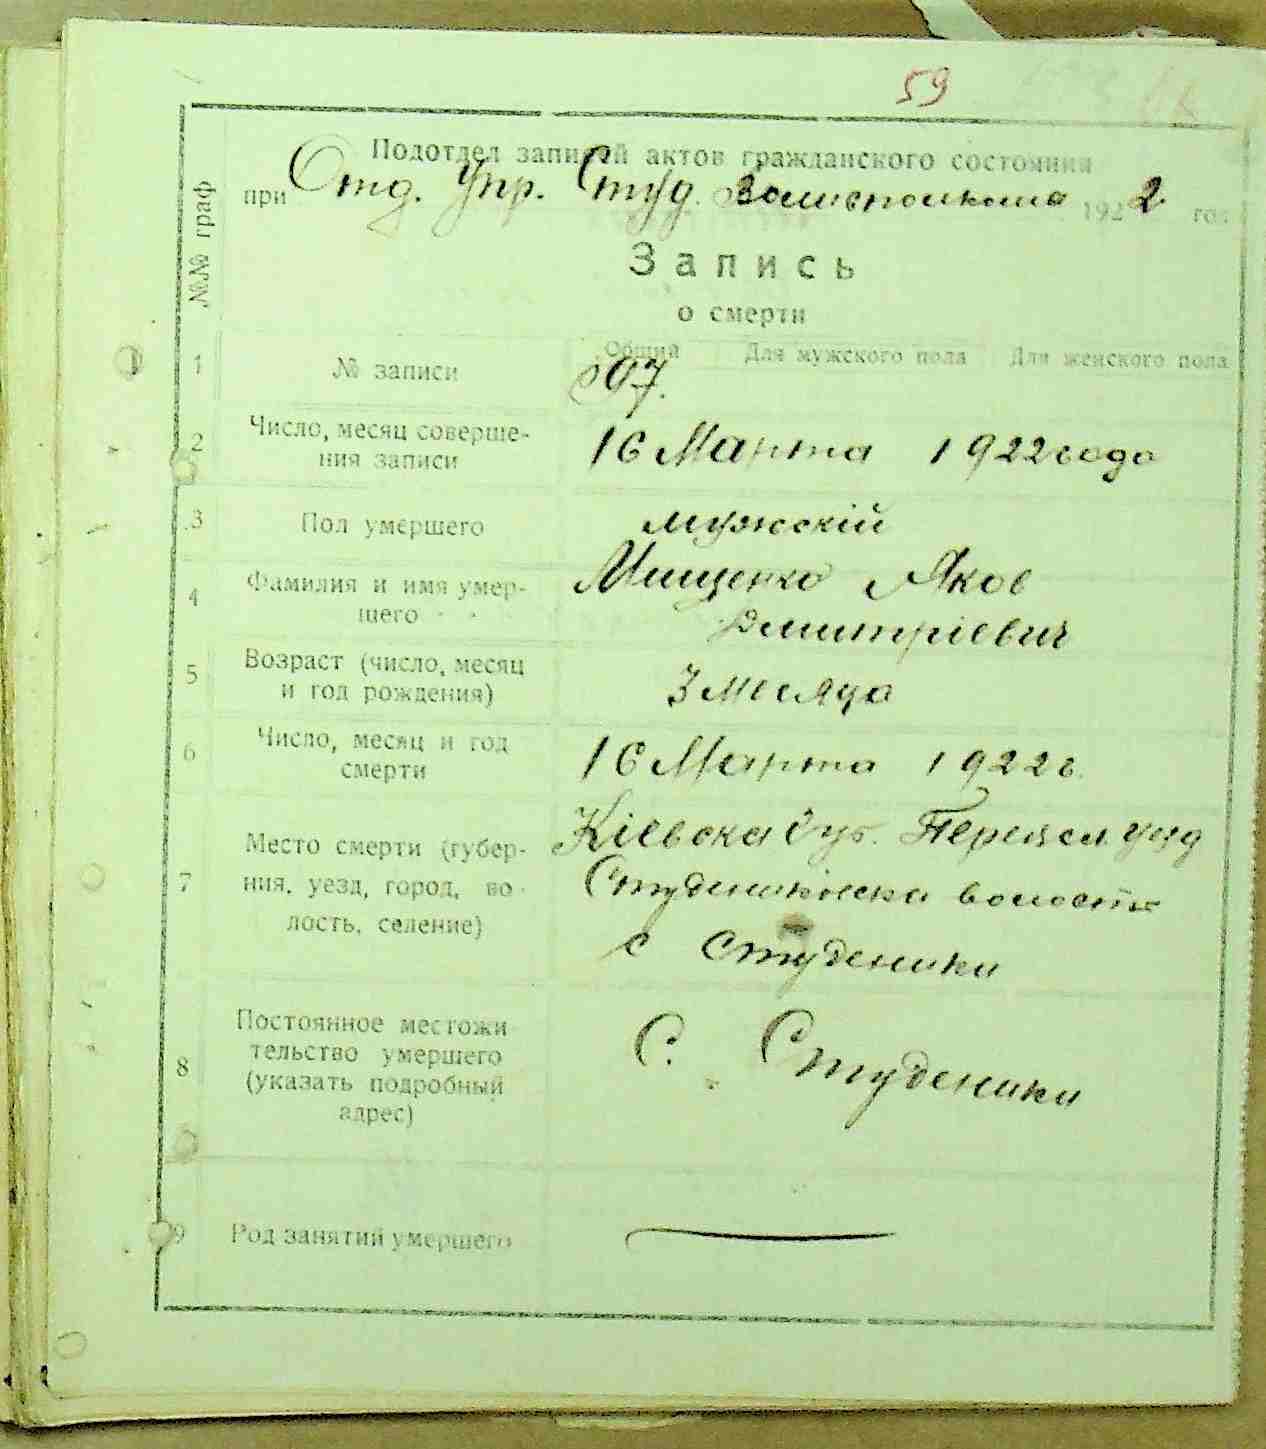 59
Подотдел записей актов гражданского состояния
при Отд. Упр. Студ. Волисполкома 1922 год
№№ граф
Запись
о смерти
Общий Для мужского пола Для женского пола
1 № записи 97.
2 Число, месяц соверше- 16 Марта 1922 года
ния записи
3 Пол умершего мужскій
4 Фамилия и имя умер- Мищенко Яков
шего Дмитріевич
5 Возраст (число, месяц 3 месяца
и год рождения)
6 Число, месяц и год 16 Марта 1922 г.
смерти
7 Место смерти (губер- Кіевска губ. Переясл. уизд
ния, уезд, город, во- Студениковска волость
лость, селение) с Студеники
8 Постоянное местожи С. Студеники
тельство умершего
(указать подробный
адрес)
9 Род занятий умершего